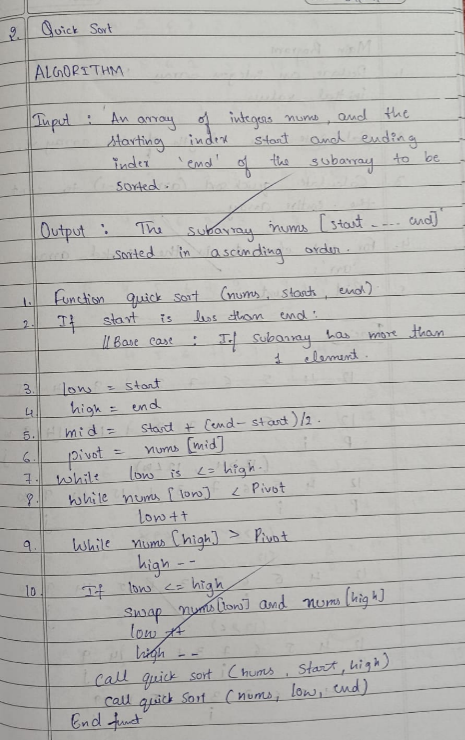 2. Quick Sort
ALGORITHM
Input : An array of integers nums, and the
starting index start and ending
index 'end' of the subarray to be
sorted.
Output : The subarray nums [start ---- end]
sorted in ascending order.
1. Function quick sort (nums, start, end)
2. If start is less than end:
// Base case : If subarray has more than
1 element.
3. low = start
4. high = end
5. mid = start + (end - start)/2.
6. pivot = nums [mid]
7. while low is <= high.
8. while nums [low] < Pivot
low++
9. While nums [high] > Pivot
high --
10. If low <= high
swap nums [low] and nums [high]
low ++
high --
call quick sort (nums, start, high)
call quick sort (nums, low, end)
End funct